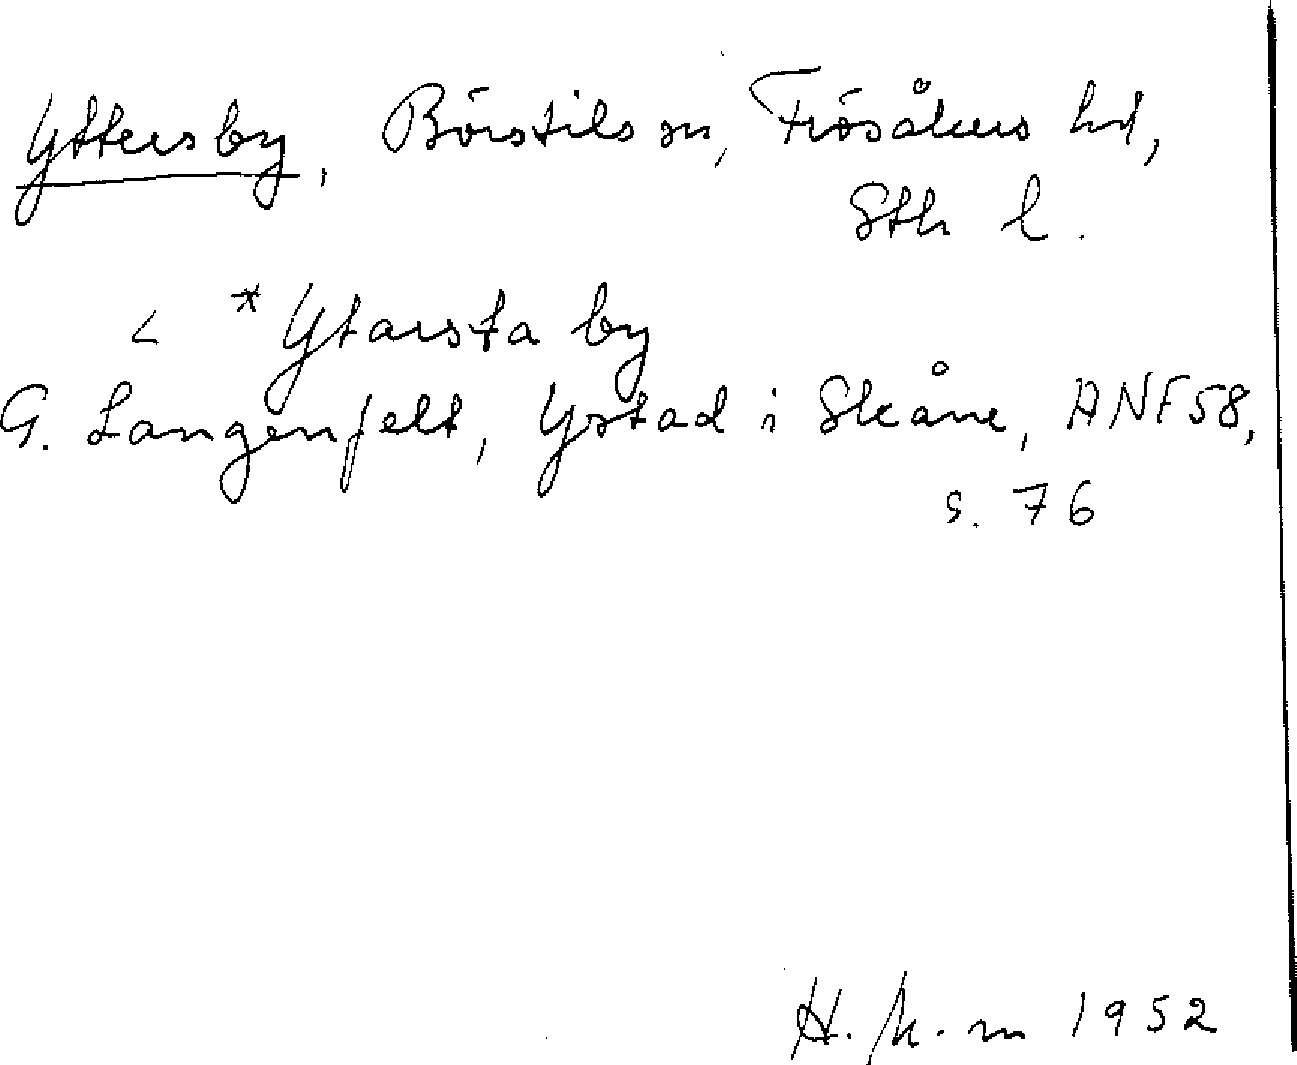 Yttersby, Börstils sn, Frösåkers hd,
Sth l.
< *Ytarsta by
G. Langenfelt, Ystad i Skåne, ANF 58,
s. 76
H. . m 1952